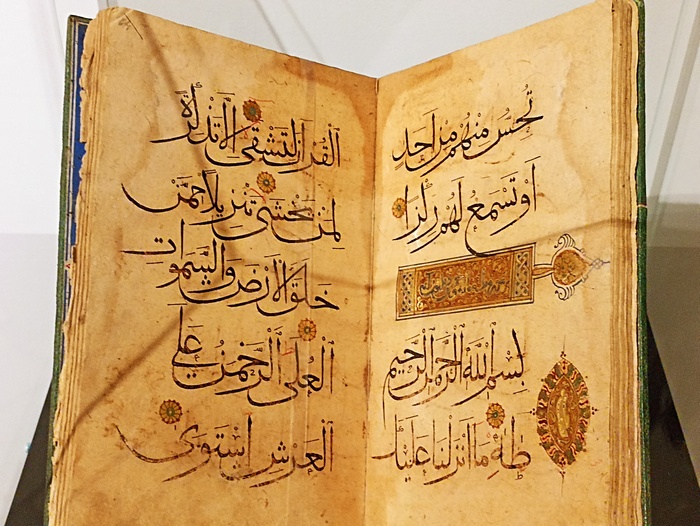 تُحِسُّ مِنْهُم مِّنْ أَحَدٍ
أَوْ تَسْمَعُ لَهُمْ رِكْزًا
بِسْمِ اللَّهِ الرَّحْمَٰنِ الرَّحِيمِ
طه مَا أَنزَلْنَا عَلَيْكَ
الْقُرْآنَ لِتَشْقَىٰ إِلَّا تَذْكِرَةً
لِّمَن يَخْشَىٰ تَنزِيلًا مِّمَّنْ
خَلَقَ الْأَرْضَ وَالسَّمَوَاتِ
الْعُلَى الرَّحْمَٰنُ عَلَى
الْعَرْشِ اسْتَوَىٰ